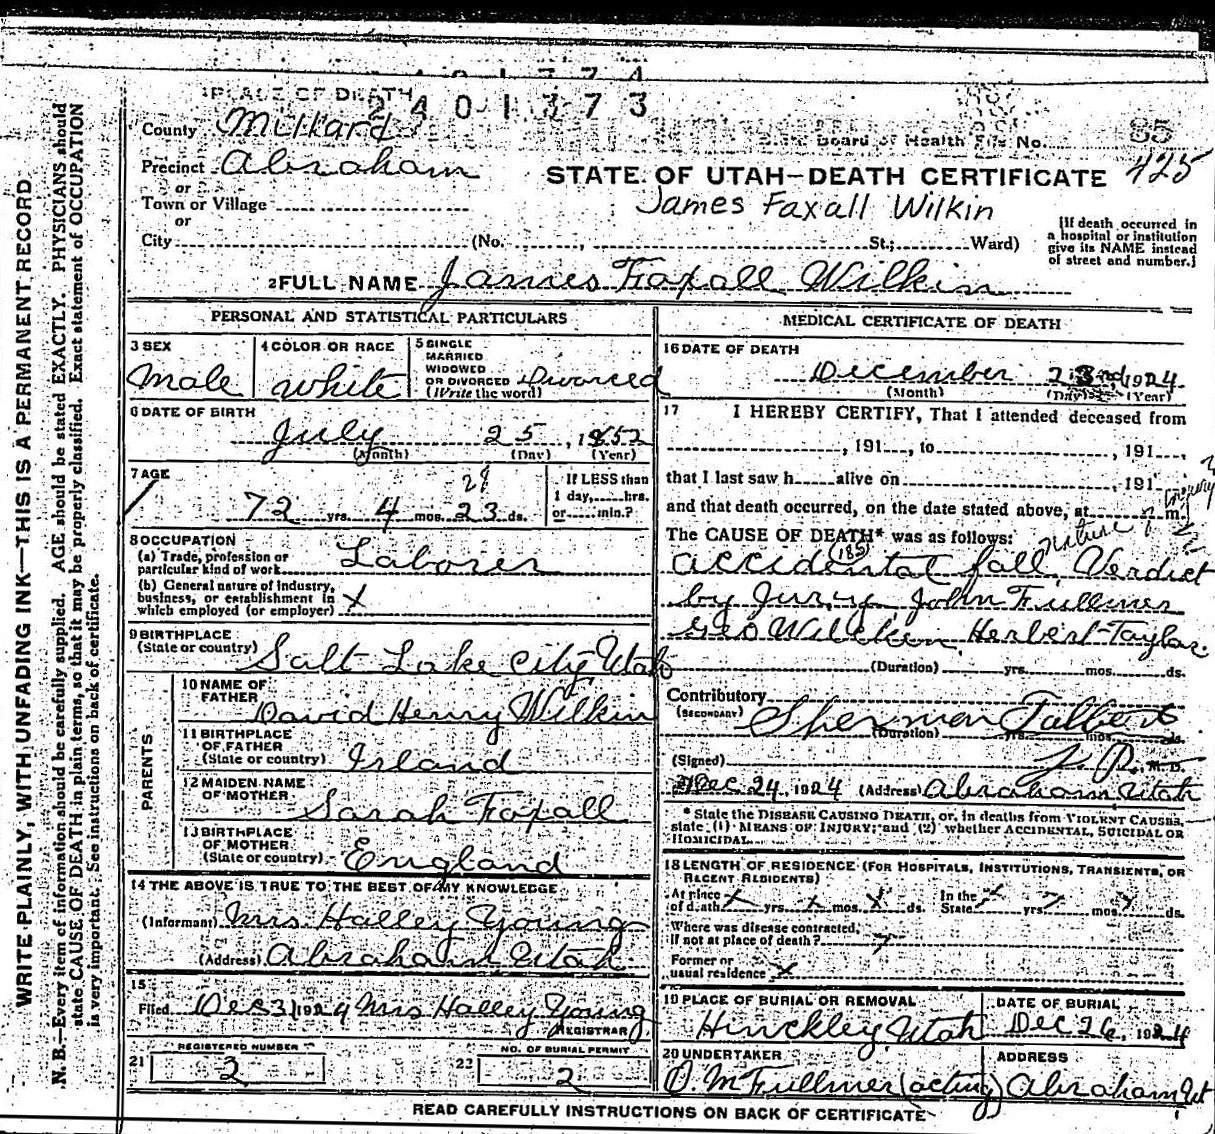 2401374
PLACE OF DEATH
2401373
County Millard
State Board of Health File No. 85
425
Precinct Abraham
or
Town or Village
or
City (No. , St.; Ward)
STATE OF UTAH—DEATH CERTIFICATE
James Faxall Wilkin
[If death occurred in
a hospital or institution
give its NAME instead
of street and number.]
2 FULL NAME James Foxall Wilkin
PERSONAL AND STATISTICAL PARTICULARS
3 SEX
Male
4 COLOR OR RACE
White
5 SINGLE
MARRIED
WIDOWED
OR DIVORCED Divorced
(Write the word)
6 DATE OF BIRTH
July 25, 1852
(Month) (Day) (Year)
7 AGE
28
72 yrs. 4 mos. 23 ds.
If LESS than
1 day, hrs.
or min.?
8 OCCUPATION
(a) Trade, profession or
particular kind of work Laborer
(b) General nature of industry,
business, or establishment in
which employed (or employer) X
9 BIRTHPLACE
(State or country) Salt Lake City Utah
PARENTS
10 NAME OF
FATHER David Henry Wilkin
11 BIRTHPLACE
OF FATHER
(State or country) Irland
12 MAIDEN NAME
OF MOTHER Sarah Foxall
13 BIRTHPLACE
OF MOTHER
(State or country) England
14 THE ABOVE IS TRUE TO THE BEST OF MY KNOWLEDGE
(Informant) Mrs Halley Young
(Address) Abraham Utah
15
Filed Dec 31 1924 Mrs Halley Young
REGISTRAR
21 REGISTERED NUMBER
2
22 NO. OF BURIAL PERMIT
2
MEDICAL CERTIFICATE OF DEATH
16 DATE OF DEATH
December 23rd, 1924
(Month) (Day) (Year)
17 I HEREBY CERTIFY, That I attended deceased from
, 191 , to , 191 ,
that I last saw h alive on , 191
and that death occurred, on the date stated above, at ? m.
The CAUSE OF DEATH* was as follows: nature of injury
(185)
accidental fall, Verdict
by Jury John Fullmer
Geo Wilcken, Herbert Taylor.
(Duration) yrs. mos. ds.
Contributory
(SECONDARY)
(Duration) yrs. mos. ds.
Sherman Talbert
(Signed) J. P., M. D.
Dec 24, 1924 (Address) Abraham Utah
* State the DISEASE CAUSING DEATH, or, in deaths from VIOLENT CAUSES,
state (1) MEANS OF INJURY; and (2) whether ACCIDENTAL, SUICIDAL OR
HOMICIDAL.
18 LENGTH OF RESIDENCE (FOR HOSPITALS, INSTITUTIONS, TRANSIENTS, OR
RECENT RESIDENTS)
At place
of death X yrs. X mos. X ds. In the
State X yrs. ? mos. ? ds.
Where was disease contracted,
if not at place of death? ?
Former or
usual residence X
19 PLACE OF BURIAL OR REMOVAL
Hinckley, Utah
DATE OF BURIAL
Dec 26, 1924
20 UNDERTAKER
O. M Fullmer (acting)
ADDRESS
Abraham Ut
READ CAREFULLY INSTRUCTIONS ON BACK OF CERTIFICATE
WRITE PLAINLY, WITH UNFADING INK—THIS IS A PERMANENT RECORD
N. B.—Every item of information should be carefully supplied. AGE should be stated EXACTLY. PHYSICIANS should
state CAUSE OF DEATH in plain terms, so that it may be properly classified. Exact statement of OCCUPATION
is very important. See instructions on back of certificate.